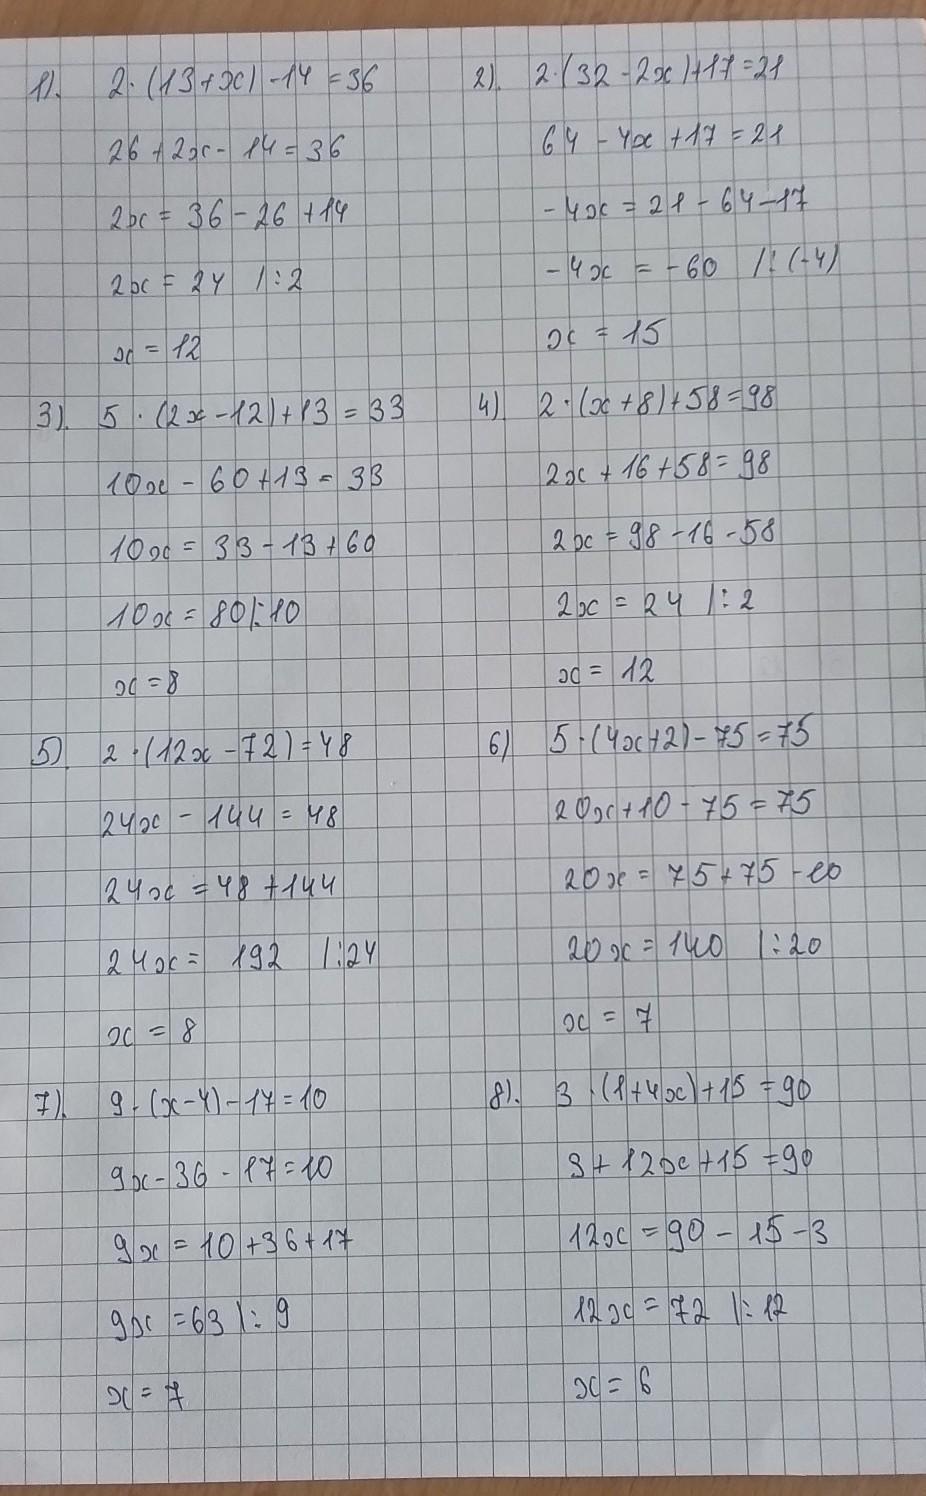 1). 2·(13+x)-14=36
26+2x-14=36
2x=36-26+14
2x=24 |:2
x=12
2). 2·(32-2x)+17=21
64-4x+17=21
-4x=21-64-17
-4x=-60 |:(-4)
x=15
3). 5·(2x-12)+13=33
10x-60+13=33
10x=33-13+60
10x=80|:10
x=8
4) 2·(x+8)+58=98
2x+16+58=98
2x=98-16-58
2x=24 |:2
x=12
5) 2·(12x-72)=48
24x-144=48
24x=48+144
24x=192 |:24
x=8
6) 5·(4x+2)-75=75
20x+10-75=75
20x=75+75-10
20x=140 |:20
x=7
7). 9·(x-4)-17=10
9x-36-17=10
9x=10+36+17
9x=63|:9
x=7
8). 3·(1+4x)+15=90
3+12x+15=90
12x=90-15-3
12x=72 |:12
x=6